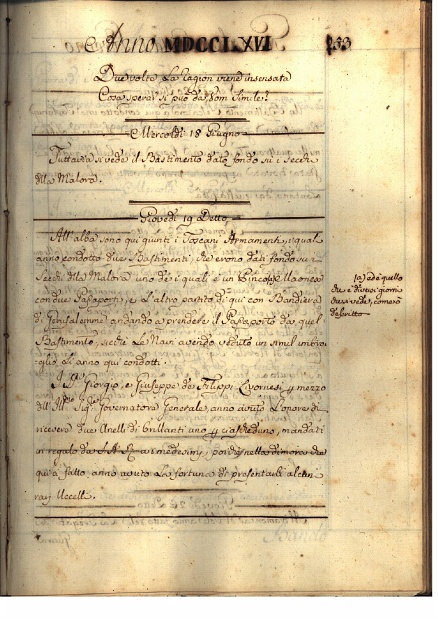 Anno MDCCLXVI
233
Due volte La Cagion viene insensata
Cosa sperar si può da Uom Simile?
Mercoldì 18 Giugno
Tuttavia si vede il Bastimento dato fondo su i Secchi
dlla Malora.
Giovedì 19 Detto
All'alba sono qui giunti i Toscani Armamenti, i quali
anno condotto due Bastimenti, che erono dati fondo su i
Secchi dlla Malora uno de i quali è un Pinco
con due Passaporti, e L'altro partito di qui con Bandiera
di Gerusalemme andando a prendere il Passaporto da quel
Bastimento, sicche Le Navi avendo veduto un simil imbro-
glio Li anno qui condotti.
I SS.ri Giorgio, e Giuseppe de Filippi Livornesi p mezzo
dll Ill.mo Sig.r Governatore Generale, anno avuto L'onore di
ricevere due Anelli di brillanti uno p ciascheduno, mandati
in regalo da S.A.R. a i medesimi, poiche nella dimora che
qui à fatto, anno avuto La fortuna di presentarli alcuni
rari Uccelli.
(a) ed è quello
che è diversi giorni
che si vede, come ò
descritto